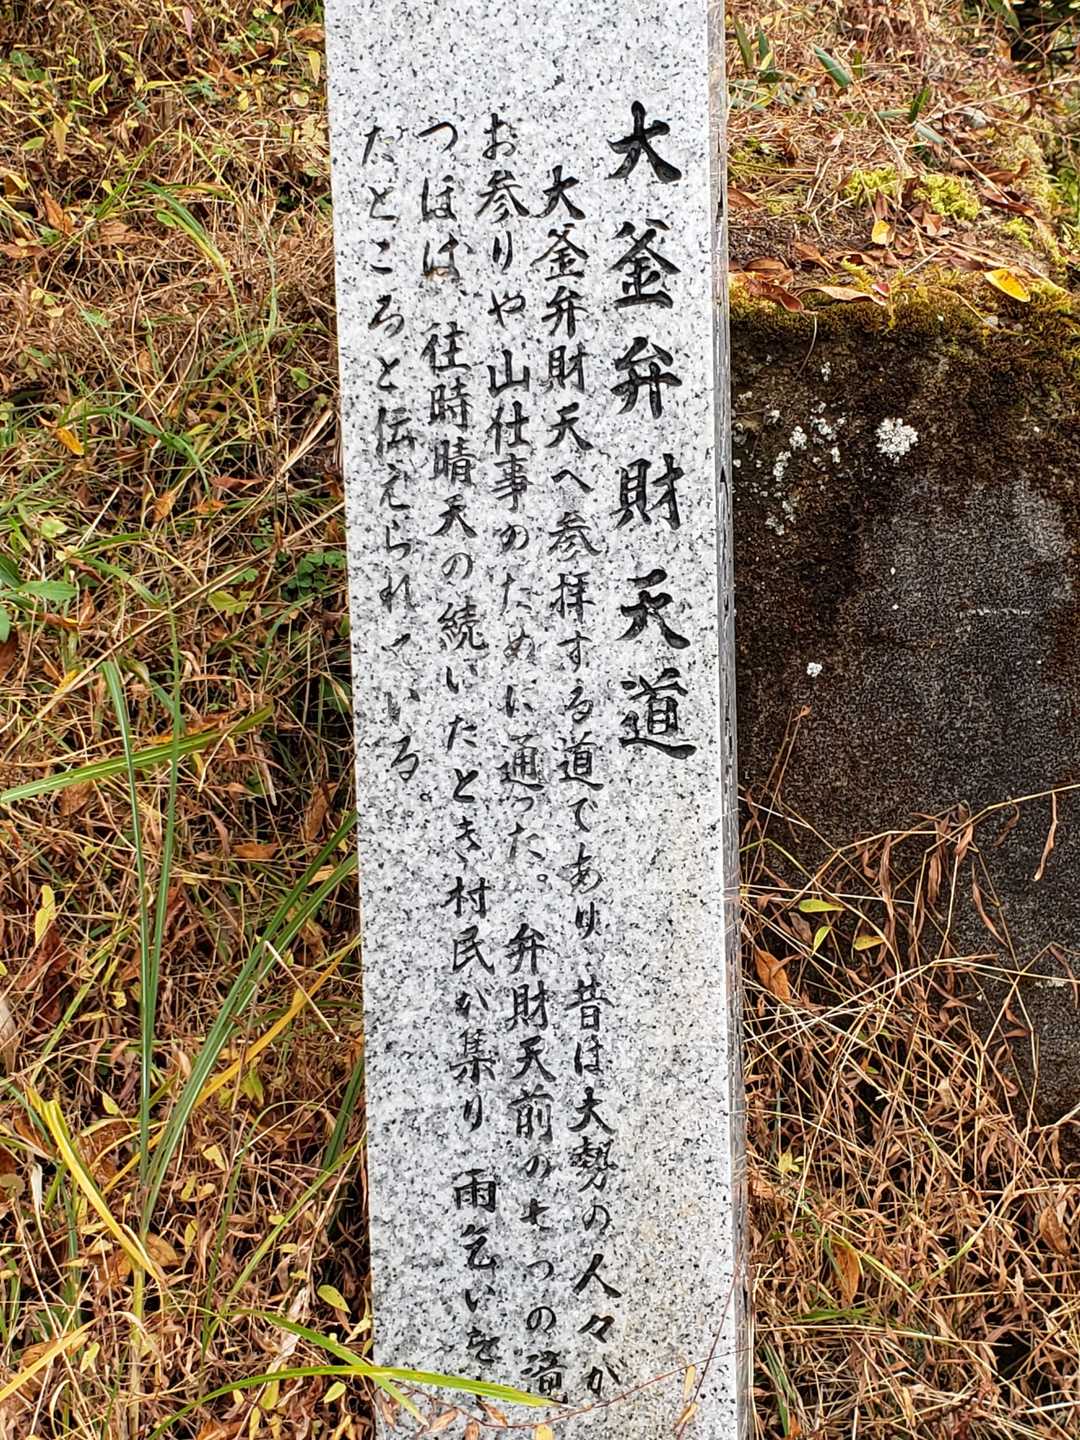 大釜弁財天道
大釜弁財天へ参拝する道であり昔は大勢の人々が
お参りや山仕事のために通った。弁財天前の七つの滝
つほは、往時晴天の続いたとき村民が集り雨乞いを
たところと伝えられている。